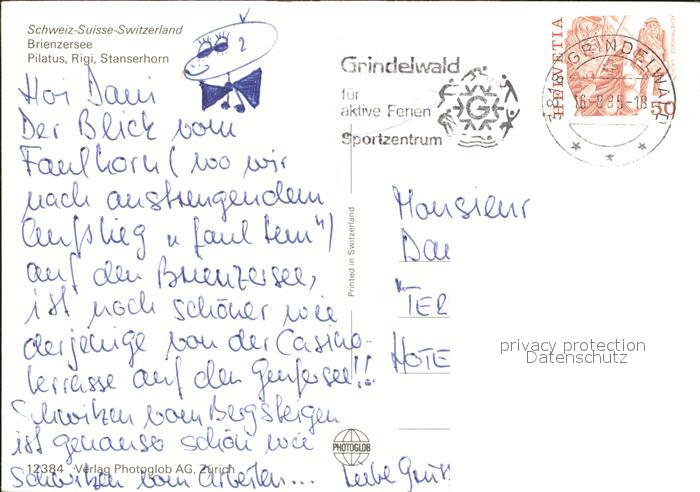 Schweiz-Suisse-Switzerland
Brienzersee
Pilatus, Rigi, Stanserhorn
Hoi Dani
Der Blick vom
Faulhorn (wo wir
nach anstrengendem
Aufstieg "faulten")
auf den Brienzersee,
ist noch schöner wie
derjenige von der Casino-
terrasse auf den Genfersee!!
Schwitzen vom Bergsteigen
ist genauso schön wie
Schwitzen vom Arbeiten...
Liebe Grüss
12384 Verlag Photoglob AG, Zürich
Printed in Switzerland
PHOTOGLOB
Grindelwald
für
aktive Ferien
Sportzentrum
G
HELVETIA
50
GRINDELWALD
Monsieur
Dan
TER
HOTE
privacy protection
Datenschutz